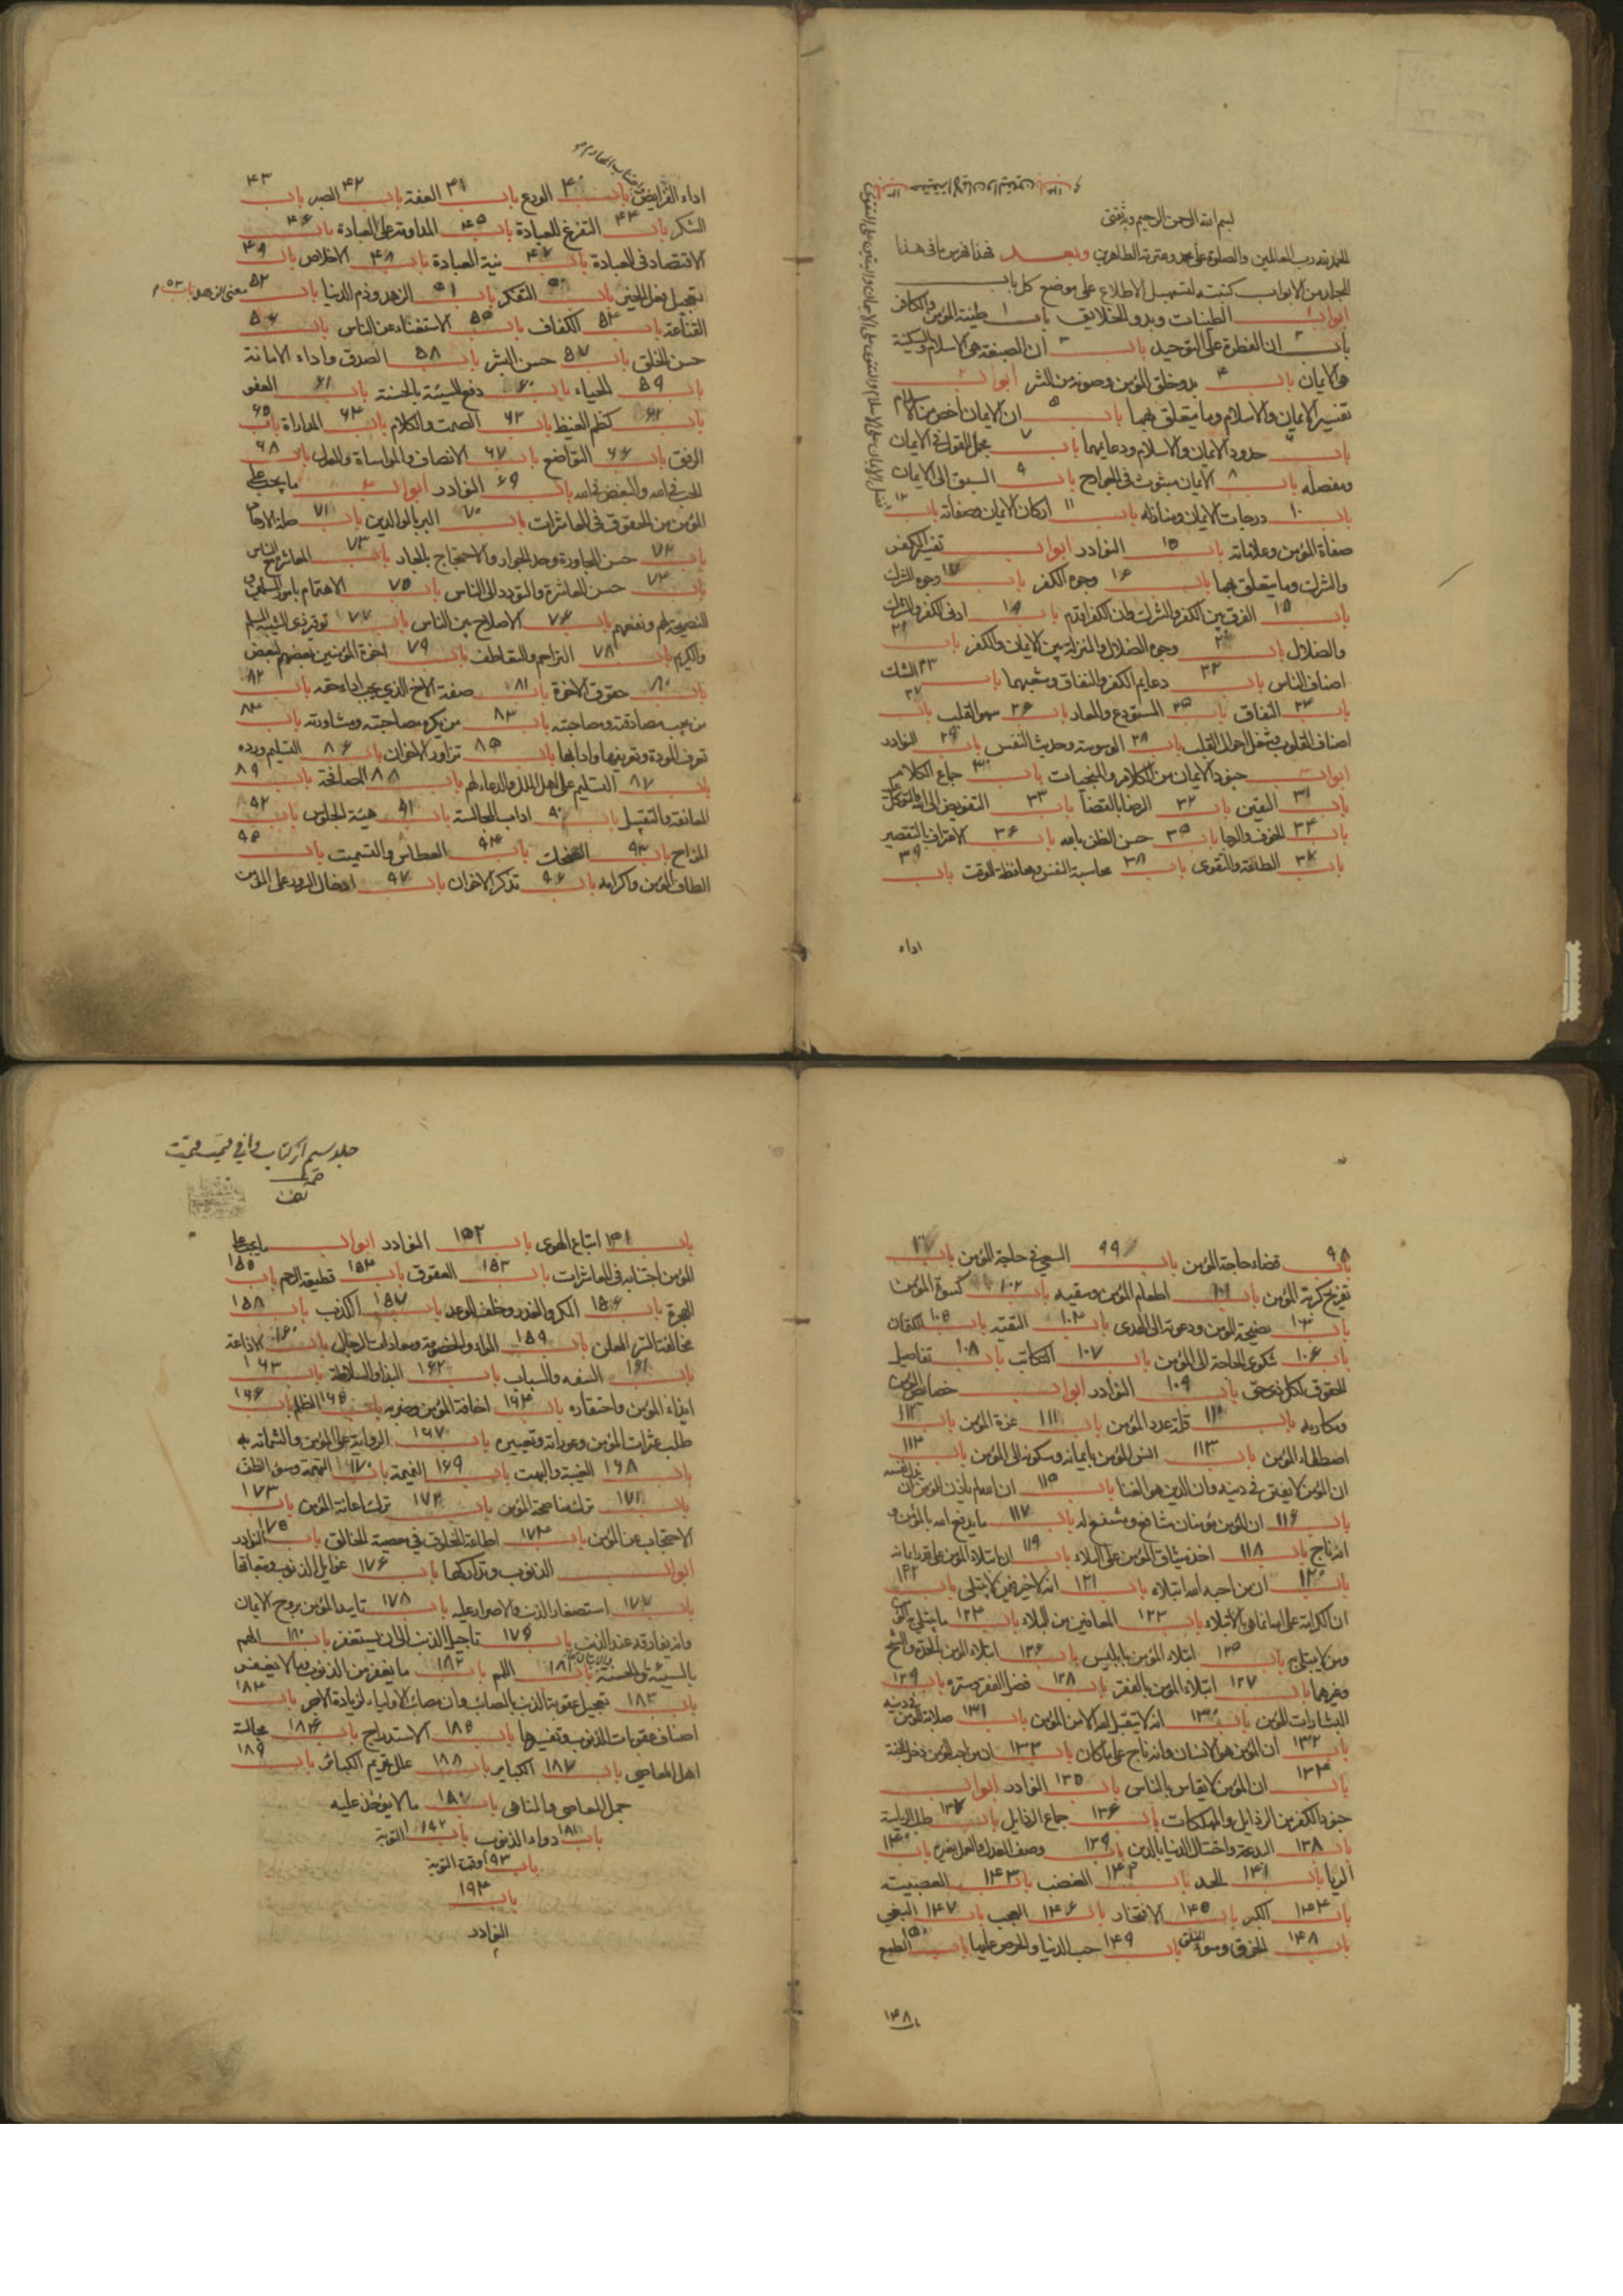 بسم الله الرحمن الرحيم وبه ثقتى
الحمد لله رب العالمين والصلوة على محمد وعترته الطاهرين وبعد فهذا فهرس ما فى هذا
المجلد من الابواب كتبته لتسهيل الاطلاع على موضع كل باب
ابواب الطينات وبدو الخلايق باب ١ طينة المؤمن والكافر
باب ٢ ان الفطرة على التوحيد باب ٣ ان الصبغة هى الاسلام والسكينة
هى الايمان باب ۴ بدو خلق المؤمن وصونه من الشر ابواب
تفسير الايمان والاسلام وما يتعلق بهما باب ۵ ان الايمان اخص من الاسلام
باب حدود الايمان والاسلام ودعايمهما باب ٧ مجمل القول فى الايمان
ومفصله باب ٨ الايمان مبثوث فى الجوارح باب ٩ السبق الى الايمان
باب ١٠ درجات الايمان ومنازله باب ١١ اركان الايمان وصفاته باب ١٢
صفاة المؤمن وعلاماته باب ١۵ النوادر ابواب تفسير الكفر
والشرك وما يتعلق بهما باب ١۶ وجوه الكفر باب ١٧ وجوه الشرك
باب ١٨ الفرق بين الكفر والشرك وان الكفر اقدم باب ١٩ ادنى الكفر والشرك
والضلال باب ٢٠ وجوه الضلال والمنزلة بين الايمان والكفر باب ٢١
اصناف الناس باب ٢٢ دعايم الكفر والنفاق وشعبهما باب ٢٣ الشك
باب ٢۴ النفاق باب ٢۵ المستودع والمعار باب ٢۶ سهو القلب باب ٢٧
اصناف القلوب وتنقل احوال القلب باب ٢٨ الوسوسة وحديث النفس باب ٢٩ النوادر
ابواب جنود الايمان من المكارم والمنجيات باب ٣٠ جماع المكارم
باب ٣١ اليقين باب ٣٢ الرضا بالقضا باب ٣٣ التفويض الى الله والتوكل عليه
باب ٣۴ الخوف والرجا باب ٣۵ حسن الظن بالله باب ٣۶ الاعتراف بالتقصير
باب ٣٧ الطاعة والتقوى باب ٣٨ محاسبة النفس ومحافظة الوقت باب ٣٩
اداء
اداء الفرايض باب ۴٠ الورع باب ۴١ العفة باب ۴٢ الصبر باب ۴٣
الشكر باب ۴۴ التفرغ للعبادة باب ۴۵ المداومة على العبادة باب ۴۶
الاقتصاد فى العبادة باب ۴٧ نية العبادة باب ۴٨ الاخلاص باب ۴٩
تعجيل فعل الخير باب ۵٠ التفكر باب ۵١ الزهد وذم الدنيا باب ۵٢ معنى الزهد باب ۵٣
القناعة باب ۵۴ الكفاف باب ۵۵ الاستغناء عن الناس باب ۵۶
حسن الخلق باب ۵٧ حسن البشر باب ۵٨ الصدق واداء الامانة
باب ۵٩ الحياء باب ۶٠ دفع السيئة بالحسنة باب ۶١ العفو
باب ۶٢ كظم الغيظ باب ۶٣ الصمت والكلام باب ۶۴ المداراة باب ۶۵
الرفق باب ۶۶ التواضع باب ۶٧ الانصاف والمواساة والعدل باب ۶٨
الحب فى الله والبغض فى الله باب ۶٩ النوادر ابواب ما يجب على
المؤمن من الحقوق فى المعاشرات باب ٧٠ البر بالوالدين باب ٧١ صلة الارحام
باب ٧٢ حسن المجاورة وحد الجوار والاحتجاج بالجار باب ٧٣ المعاشرة مع الناس
باب ٧۴ حسن المعاشرة والتودد الى الناس باب ٧۵ الاهتمام بامور المسلمين و
النصيحة لهم ونفعهم باب ٧۶ الاصلاح بين الناس باب ٧٧ توقير ذى الشيبة المسلم
والكريم باب ٧٨ التراحم والتعاطف باب ٧٩ اخوة المؤمنين بعضهم لبعض
باب ٨٠ حقوق الاخوة باب ٨١ صفة الاخ الذى يجب اداء حقه باب ٨٢
من يجب مصادقته ومصاحبته باب ٨٣ من يكره مصاحبته ومشاورته باب ٨۴
تعرف المودة وتعريفها وادابها باب ٨۵ تزاور الاخوان باب ٨۶ التسليم ورده
باب ٨٧ التسليم على اهل الملل والدعاء لهم باب ٨٨ المصافحة باب ٨٩
المعانقة والتقبيل باب ٩٠ اداب المجالسة باب ٩١ هيئة الجلوس باب ٩٢
المزاح باب ٩٣ الضحك باب ٩۴ العطاس والتسميت باب ٩۵
الطاف المؤمن واكرامه باب ٩۶ تذكر الاخوان باب ٩٧ ادخال السرور على المؤمن
باب ٩٨ قضاء حاجة المؤمن باب ٩٩ السعى فى حاجة المؤمن باب
تفريج كربة المؤمن باب ١٠١ اطعام المؤمن وسقيه باب ١٠٢ كسوة المؤمن
باب ١٠٣ نصيحة المؤمن ودعوته الى الهدى باب ١٠۴ التقية باب ١٠۵ الكتمان
باب ١٠۶ شكوى الحاجة الى المؤمن باب ١٠٧ التكاتب باب ١٠٨ تفاصيل
الحقوق لكل ذى حق باب ١٠٩ النوادر ابواب خصايص المؤمن
ومكارمه باب ١١٠ قلة عدد المؤمن باب ١١١ عزة المؤمن باب ١١٢
اصطفاء المؤمن باب ١١٣ انس المؤمن بايمانه وسكونه الى المؤمن باب ١١۴
ان المؤمن لا يفتن فى دينه وان الدين هو الغنا باب ١١۵
باب ١١۶ ان المؤمن مؤمنان شافع ومشفع له باب ١١٧ ما يدفع الله بالمؤمن و
انه ناج باب ١١٨ اخذ ميثاق المؤمن على البلاء باب ١١٩ ان ابتلاء المؤمن على قدر ايمانه
باب ١٢٠ ان من احبه الله ابتلاه باب ١٢١ انه لا خير فيمن لا يبتلى باب ١٢٢
ان الكرامة على الله انما هو بالابتلاء باب ١٢٣ المعافين من البلاء باب ١٢۴ ما يبتلى به المؤمن
وما لا يبتلى به باب ١٢۵ ابتلاء المؤمن بابليس باب ١٢۶ ابتلاء المؤمن بالحدة والشح
وغيرهما باب ١٢٧ ابتلاء المؤمن بالفقر باب ١٢٨ فضل الفقر وستره باب ١٢٩
البشارات للمؤمن باب ١٣٠ انه لا يتقبل الله الا من المؤمن باب ١٣١ صلابة المؤمن فى دينه
باب ١٣٢ ان المؤمن هو الانسان وانه ناج على ما كان باب ١٣٣ ان من احب المؤمن دخل الجنة
باب ١٣۴ ان المؤمن لا يقاس بالناس باب ١٣۵ النوادر ابواب
جنود الكفر من الرذايل والمهلكات باب ١٣۶ جماع الرذايل باب ١٣٧ طلب الرياسة
باب ١٣٨ البدعة واختتال الدنيا بالدين باب ١٣٩ وصف العدل والعمل بغيره باب ١۴٠
الريا باب ١۴١ الحسد باب ١۴٢ الغضب باب ١۴٣ العصبية
باب ١۴۴ الكبر باب ١۴۵ الافتخار باب ١۴۶ العجب باب ١۴٧ البغى
باب ١۴٨ الخرق وسوء الخلق باب ١۴٩ حب الدنيا والحرص عليها باب ١۵٠ الطمع
جلد سيم از كتاب وافى
باب ١۵١ اتباع الهوى باب ١۵٢ النوادر ابواب ما يجب على
المؤمن اجتنابه فى المعاشرات باب ١۵٣ العقوق باب ١۵۴ قطيعة الرحم باب ١۵۵
الهجرة باب ١۵۶ المكر والغدر وخلف الوعد باب ١۵٧ الكذب باب ١۵٨
مخالفة السر العلن باب ١۵٩ المراء والخصومة ومعادات الرجال باب ١۶٠ الاذاعة
باب ١۶١ السفه والسباب باب ١۶٢ البذا والسلاطة باب ١۶٣
ايذاء المؤمن واحتقاره باب ١۶۴ اخافة المؤمن وضربه باب ١۶۵ الظلم باب ١۶۶
طلب عثرات المؤمن وعوراته وتعييره باب ١۶٧ الرواية على المؤمن والشماتة به
باب ١۶٨ الغيبة والبهت باب ١۶٩ النميمة باب ١٧٠ التهمة وسوء الظن
باب ١٧١ ترك مناصحة المؤمن باب ١٧٢ ترك اعانة المؤمن باب ١٧٣
الاحتجاب عن المؤمن باب ١٧۴ اطاعة المخلوق فى معصية الخالق باب ١٧۵ النوادر
ابواب الذنوب وتداركها باب ١٧۶ غوايل الذنوب وتبعاتها
باب ١٧٧ استصغار الذنب والاصرار عليه باب ١٧٨ تاييد المؤمن بروح الايمان
وانه يفارقه عند الذنب باب ١٧٩ تاجيل الذنب الى ان يستغفر باب ١٨٠ الهم
بالسيئة والحسنة باب ١٨١ اللمم باب ١٨٢ ما يغفر من الذنوب وما لا يغفر
باب ١٨٣ تعجيل عقوبة الذنب بالمصائب وان مصائب الاولياء لزيادة الاجر باب ١٨۴
اصناف عقوبات الذنوب وتفسيرها باب ١٨۵ الاستدراج باب ١٨۶ مجالسة
اهل المعاصى باب ١٨٧ الكباير باب ١٨٨ علل تحريم الكبائر باب ١٨٩
جمل المعاصى والمناهى باب ما لا يؤخذ عليه
باب دواء الذنوب باب ١٩٢ التوبة
باب ١٩٣ وقت التوبة
باب ١٩۴
النوادر